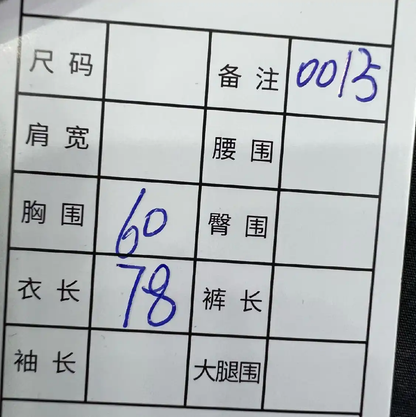 尺码 备注 0015
肩宽 腰围
胸围 60 臀围
衣长 78 裤长
袖长 大腿围